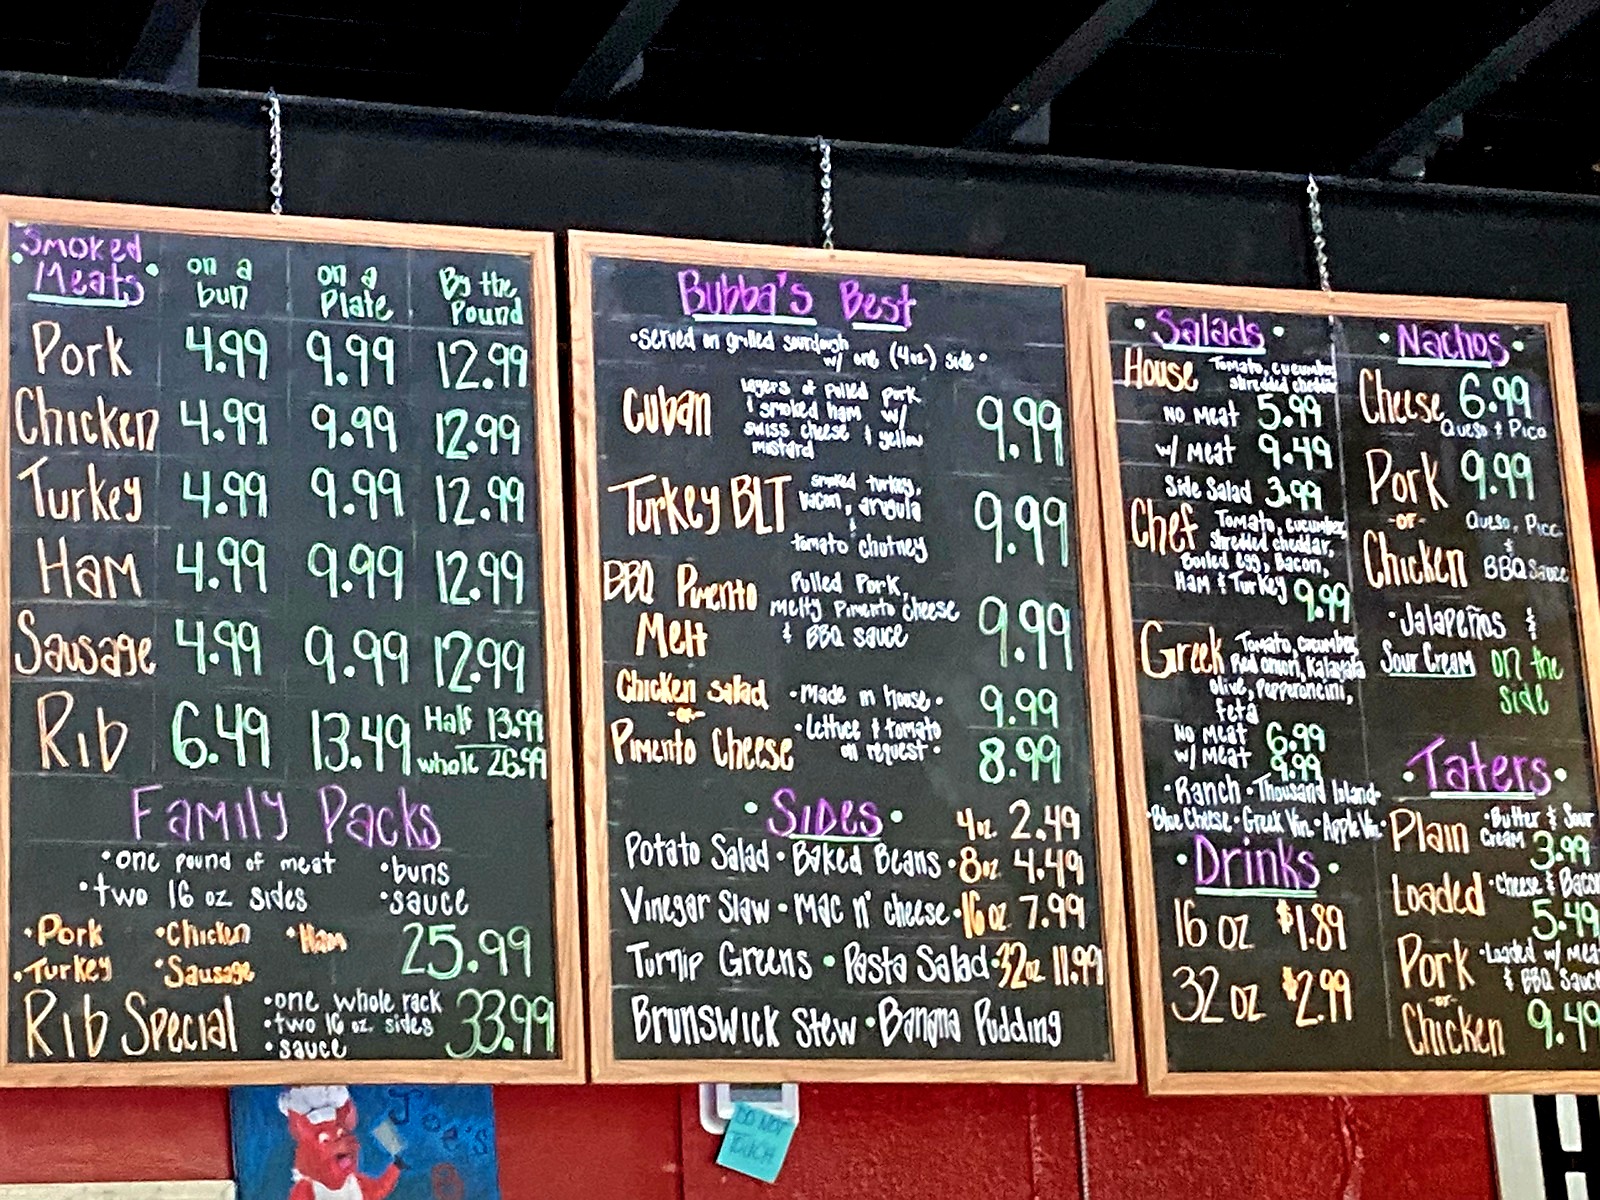 Smoked Meats on a bun on a Plate By the Pound
Pork 4.99 9.99 12.99
Chicken 4.99 9.99 12.99
Turkey 4.99 9.99 12.99
Ham 4.99 9.99 12.99
Sausage 4.99 9.99 12.99
Rib 6.49 13.49 Half 13.99
whole 26.99
Family Packs
•one pound of meat •buns
•two 16 oz sides •sauce
•Pork •Chicken •Ham 25.99
•Turkey •Sausage
Rib Special •one whole rack 33.99
•two 16 oz sides
•sauce
Bubba's Best
•served on grilled sourdough
w/ one (4oz) side•
Cuban layers of Pulled pork
& smoked ham w/
swiss cheese & yellow
mustard 9.99
Turkey BLT smoked turkey,
bacon, arugula
&
tomato chutney 9.99
BBQ Pimento Melt Pulled Pork,
Melty Pimento Cheese
& BBQ sauce 9.99
Chicken salad •Made in house• 9.99
-or-
Pimento Cheese •Lettuce & tomato
on request• 8.99
•Sides• 4oz 2.49
Potato Salad • Baked Beans • 8oz 4.49
Vinegar Slaw • Mac n' cheese • 16oz 7.99
Turnip Greens • Pasta Salad • 32oz 11.99
Brunswick Stew • Banana Pudding
•Salads•
House Tomato, cucumber
shredded cheddar
No Meat 5.99
w/ Meat 9.49
Side Salad 3.99
Chef Tomato, cucumber,
shredded cheddar,
Boiled egg, Bacon,
Ham & Turkey 9.99
Greek Tomato, cucumber,
Red onion, Kalamata
olive, Pepperoncini,
feta
No Meat 6.99
w/ Meat 9.99
•Ranch •Thousand Island•
•Blue Cheese •Greek Vin •Apple Vin•
•Drinks•
16 oz $1.89
32 oz $2.99
•Nachos•
Cheese 6.99
Queso & Pico
Pork 9.99
-or- Queso, Pico
&
Chicken BBQ Sauce
•Jalapeños &
Sour Cream on the
side
•Taters•
Plain •Butter & Sour
Cream 3.99
Loaded •Cheese & Bacon
5.49
Pork •Loaded w/ Meat
& BBQ Sauce
-or-
Chicken 9.49
DO NOT
TOUCH
Joe's